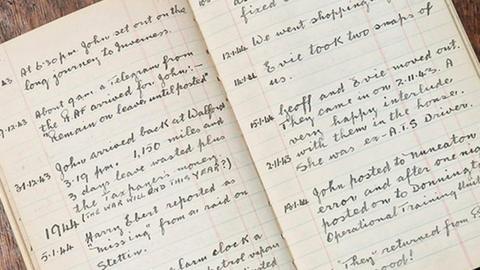 43 At 6:30pm John set out on the
long journey to Inverness.
9.12.43 About 9am a Telegram from
the RAF arrived for John:-
"Remain on leave until posted"
31.12.43 John arrived back at Walford
3.19 pm. 1,150 miles and
3 days leave wasted plus
the Taxpayer's money
1944 (THE WAR WILL END THIS YEAR?)
5.1.44 Harry Ebert reported as
"missing" from a raid on
Stettin.
alarm clock a
petrol vapour
fixed
12.1.44 We went shopping.
14.1.44 Evie took two snaps of
us.
15.1.44 Geoff and Evie moved out.
They came in on 2.11.43. A
very happy interlude
with them in the house.
2.11.43 She was ex-A.T.S Driver.
John posted to Nuneaton
error and after one nig
posted on to
Operational Training Unit
"They" returned from
good!